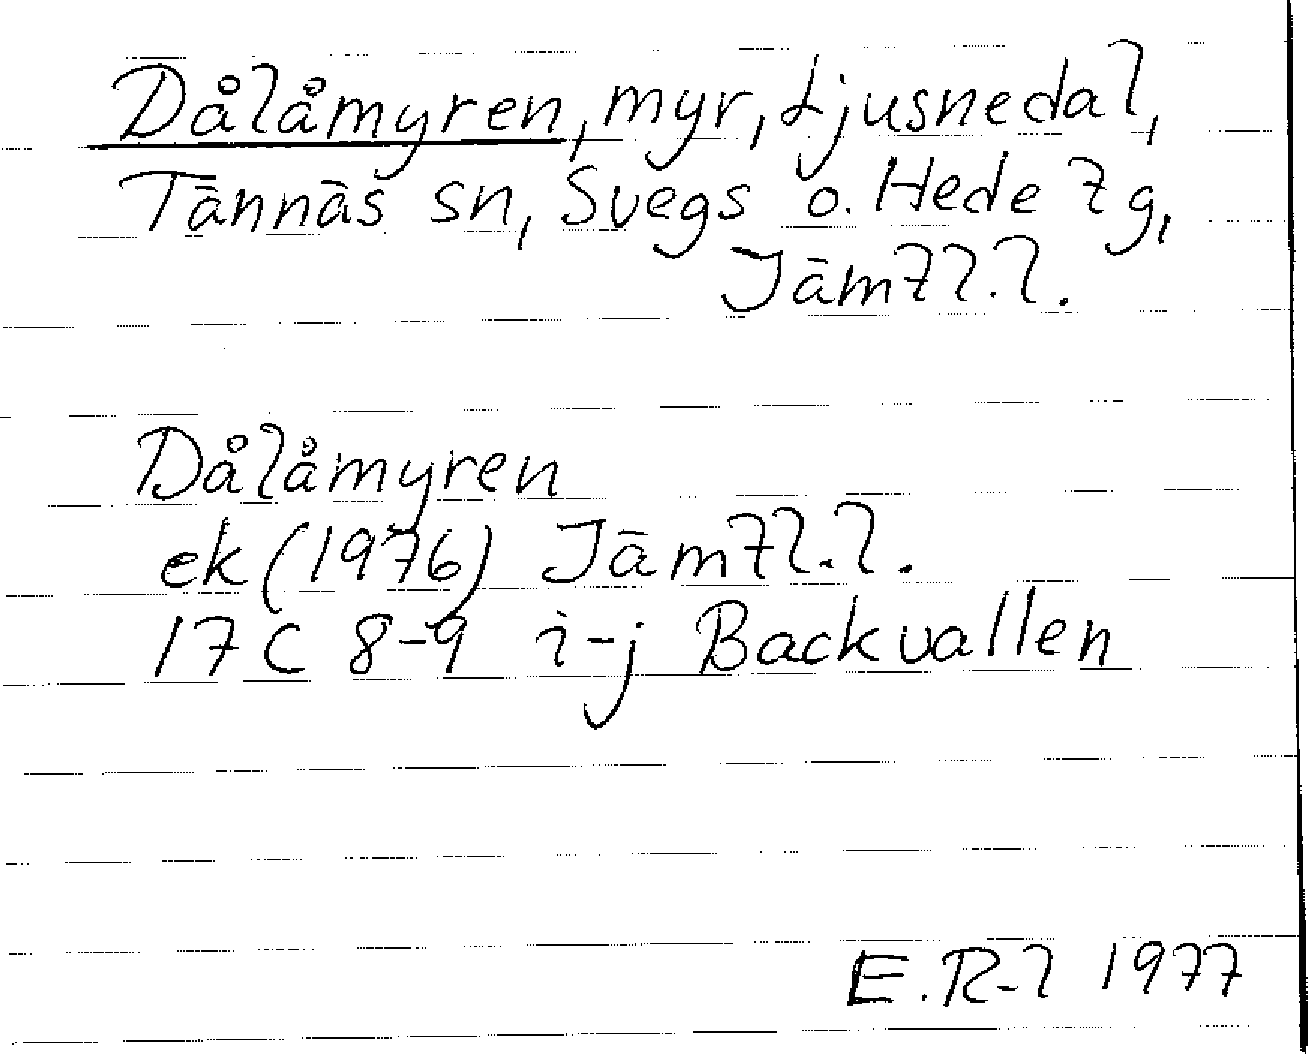 Dålåmyren, myr, Ljusnedal,
Tännäs sn, Svegs o. Hede tg,
Jämtl.l.
Dålåmyren
ek (1976) Jämtl.l.
17C 8-9 i-j Backvallen
E.R-l 1977